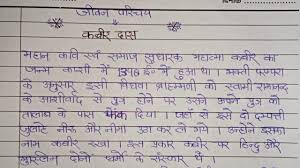 जीवन परिचय
कबीर दास
महान कवि एवं समाज सुधारक महात्मा कबीर का
जन्म काशी में 1398 ई० में हुआ था।
के अनुसार इसी विधवा ब्राह्मणी को स्वामी रामानन्द
के आशीर्वाद से पुत्र होने पर उसने अपने पुत्र को
तालाब के पास फेंक दिया। जहां से इसे दो दम्पत्ती
जुलाहे नीरू और नीमा उठा कर ले गये। उन्होंने उसका
नाम कबीर रखा। इस प्रकार कबीर पर हिन्दू और
मुस्लिम दोनों धर्मों के संस्कार थे।